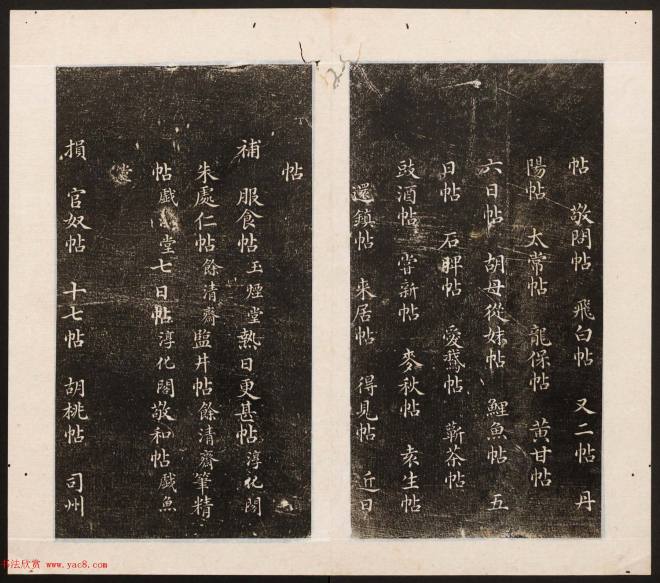 帖 敬問帖 飛白帖 又二帖 丹
陽帖 太常帖 龍保帖 黃甘帖
六日帖 胡母從妹帖 鯉魚帖 五
日帖 石脾帖 愛鵞帖 蘄茶帖
豉酒帖 嘗新帖 麥秋帖 袁生帖
還鎮帖 來居帖 得見帖 近日
帖
補 服食帖玉煙堂熱日更甚帖淳化閣
朱處仁帖餘清齋鹽井帖餘清齋筆精
帖戲堂七日帖淳化閣敬和帖戲魚
堂
損 官奴帖 十七帖 胡桃帖 司州
书法欣赏 www.yac8.com